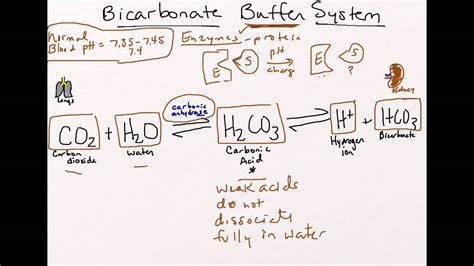 Bicarbonate Buffer System
Normal
Blood pH = 7.35-7.45
7.4
Enzymes - protein
E S pH change E S ?
Lungs
Kidney
carbonic
anhydrase
CO2 + H2O H2CO3 H+ + HCO3
Carbon
dioxide
water
Carbonic
Acid
*
Hydrogen
ion
Bicarbonate
weak acids
do not
dissociate
fully in water